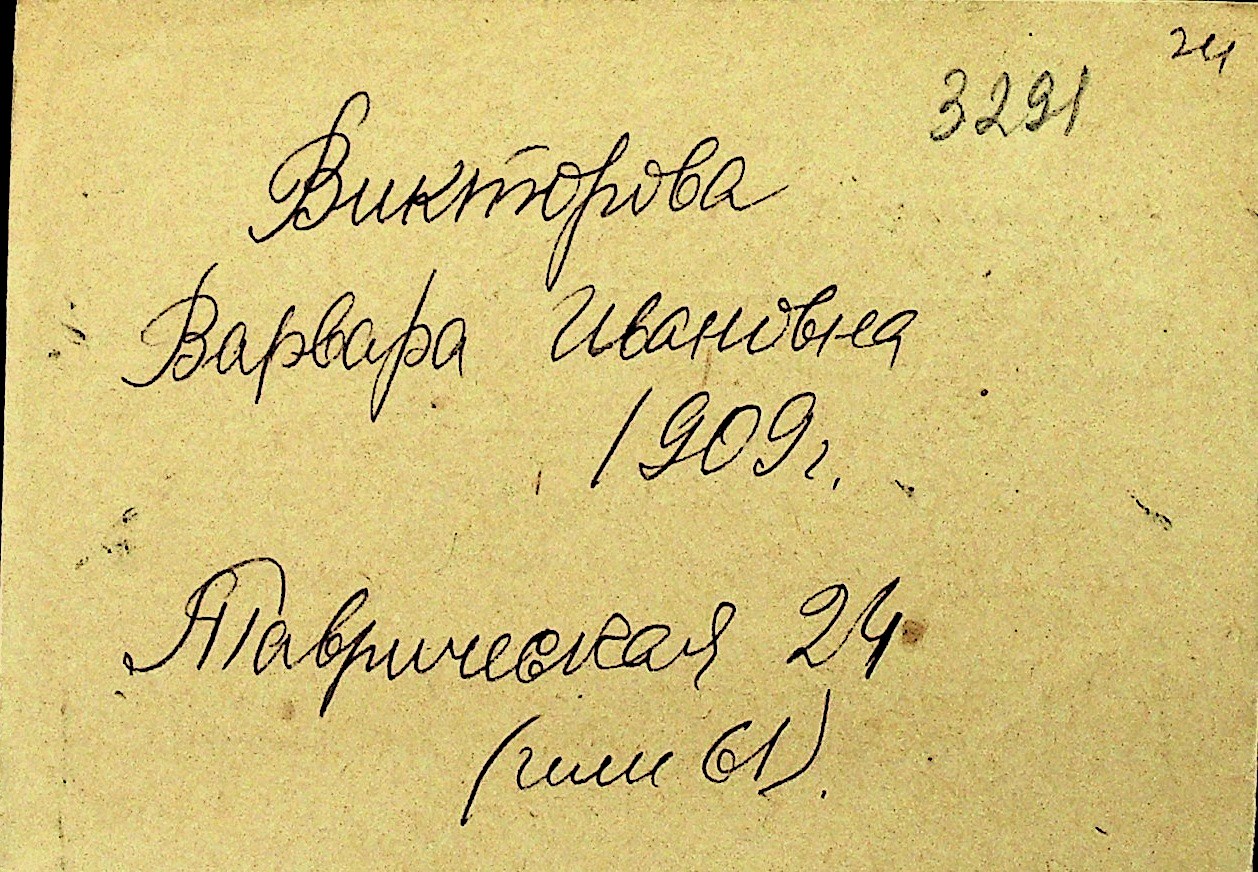 24
3291
Викторова
Варвара Ивановна
1909г.
Таврическая 24
61).